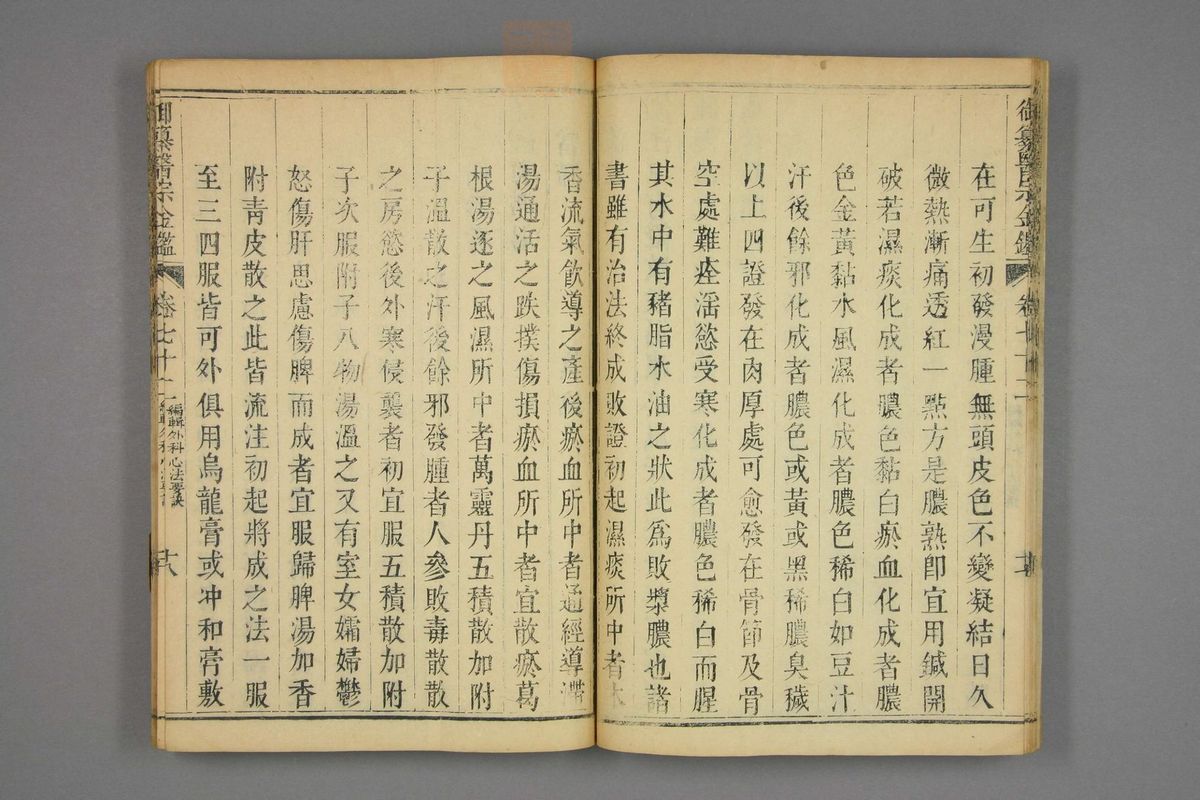 御纂醫宗金鑑 卷七十二
在可生初發漫腫無頭皮色不變凝結日久
微熱漸痛透紅一點方是膿熟即宜用鍼開
破若濕痰化成者膿色黏白瘀血化成者膿
色金黃黏水風濕化成者膿色稀白如豆汁
汗後餘邪化成者膿色或黃或黑稀膿臭穢
以上四證發在肉厚處可愈發在骨節及骨
空處難痊淫慾受寒化成者膿色稀白而腥
其水中有豬脂水油之狀此爲敗漿膿也諸
書雖有治法終成敗證初起濕痰所中者木
香流氣飲導之產後瘀血所中者通經導滯
湯通活之跌撲傷損瘀血所中者宜散瘀葛
根湯逐之風濕所中者萬靈丹五積散加附
子溫散之汗後餘邪發腫者人參敗毒散散
之房慾後外寒侵襲者初宜服五積散加附
子次服附子八物湯溫之又有室女孀婦鬱
怒傷肝思慮傷脾而成者宜服歸脾湯加香
附靑皮散之此皆流注初起將成之法一服
至三四服皆可外俱用烏龍膏或冲和膏敷
御纂醫宗金鑑 卷七十二 編輯外科心法要訣 十八